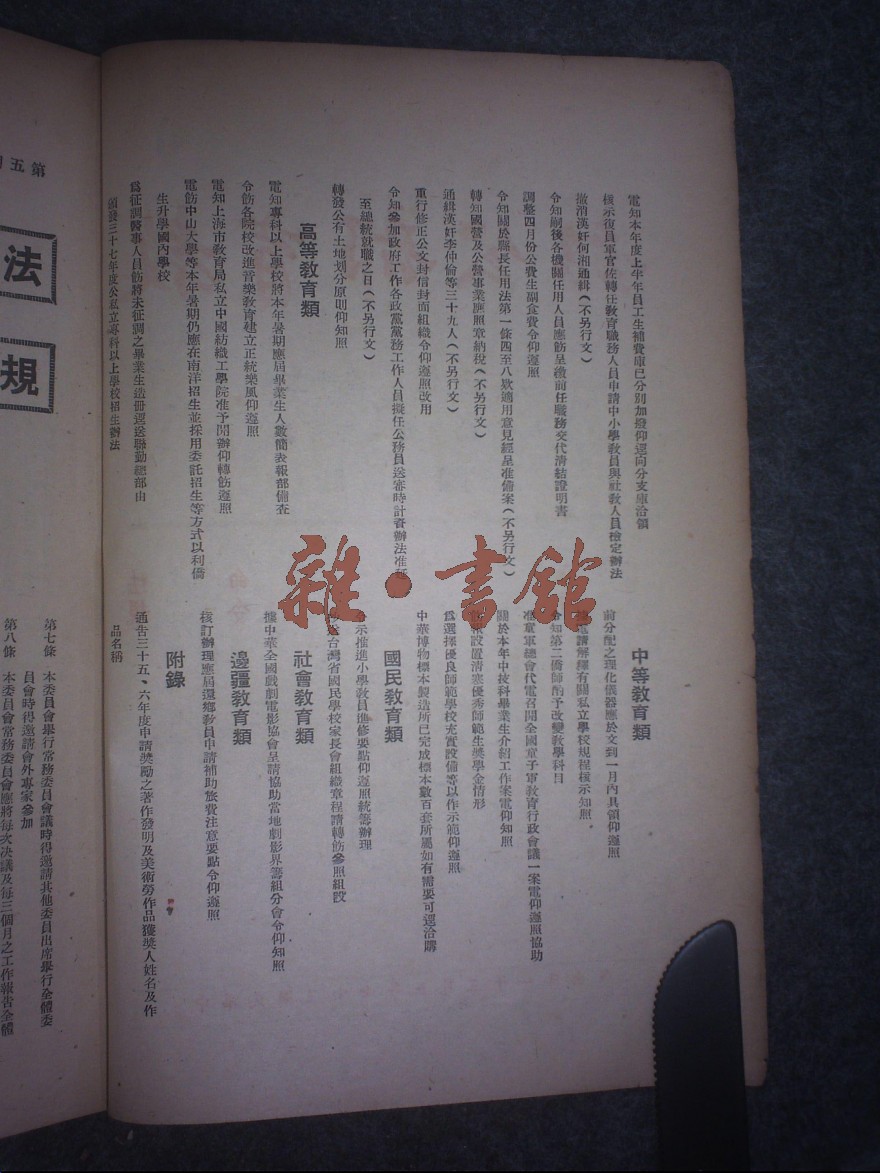 電知本年度上半年員工生補費庫已分別加撥仰逕向分支庫洽領
核示復員軍官佐轉任敎育職務人員申請中小學敎員與社敎人員檢定辦法
撤消漢奸何湘通緝（不另行文）
令知嗣後各機關任用人員應飭呈繳前任職務交代清結證明書
調整四月份公費生副食費令仰遵照
令知關於縣長任用法第一條四至八欵適用意見經呈准備案（不另行文）
轉知國營及公營事業應照章納稅（不另行文）
通緝漢奸李仲倫等三十九人（不另行文）
重行修正公文封信封面組織令仰遵照改用
令知參加政府工作各政黨黨務工作人員擬任公務員送審時計資辦法准
至總統就職之日（不另行文）
轉發公有土地划分原則仰知照
高等敎育類
電知專科以上學校將本年暑期應屆畢業生人數簡表報部備查
令飭各院校改進音樂敎育建立正統樂風仰遵照
電知上海市敎育局私立中國紡織工學院准予開辦仰轉飭遵照
電飭中山大學等本年暑期仍應在南洋招生並採用委託招生等方式以利僑
生升學國內學校
爲征調醫事人員飭將未征調之畢業生造冊逕送聯勤總部由
頒發三十七年度公私立專科以上學校招生辦法
中等敎育類
前分配之理化儀器應於文到一月內具領仰遵照
請解釋有關私立學校規程核示知照
令知第二僑師酌予改變敎學科目
准童軍總會代電召開全國童子軍敎育行政會議一案電仰遵照協助
關於本年中技科畢業生介紹工作案電仰知照
報設置清寒優秀師範生獎學金情形
爲選擇優良師範學校充實設備等以作示範仰遵照
中華博物標本製造所已完成標本數百套所屬如有需要可逕洽購
國民敎育類
示推進小學敎員進修要點仰遵照統籌辦理
台灣省國民學校家長會組織章程請轉飭參照組設
社會敎育類
據中華全國戲劇電影協會呈請協助當地劇影界籌組分會令仰知照
邊疆敎育類
核訂辦理應屆還鄉敎員申請補助旅費注意要點令仰遵照
附錄
通告三十五、六年度申請獎勵之著作發明及美術勞作品獲獎人姓名及作
品名稱
雜·書館
第五
法
規
第七條 本委員會舉行常務委員會議時得邀請其他委員出席舉行全體委
員會時得邀請會外專家參加
第八條 本委員會常務委員會應將每次決議及每三個月之工作報告全體